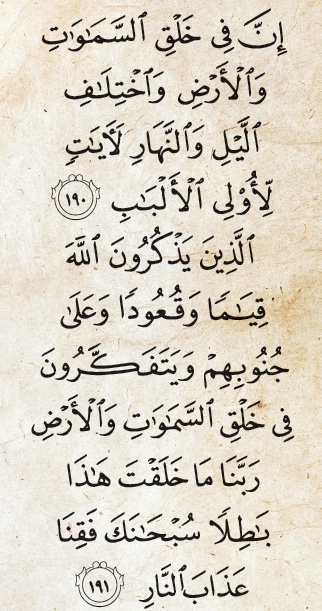 إِنَّ فِى خَلْقِ ٱلسَّمَـٰوَٰتِ
وَٱلْأَرْضِ وَٱخْتِلَـٰفِ
ٱلَّيْلِ وَٱلنَّهَارِ لَـَٔايَـٰتٍ
لِّأُو۟لِى ٱلْأَلْبَـٰبِ ١٩٠
ٱلَّذِينَ يَذْكُرُونَ ٱللَّهَ
قِيَـٰمًا وَقُعُودًا وَعَلَىٰ
جُنُوبِهِمْ وَيَتَفَكَّرُونَ
فِى خَلْقِ ٱلسَّمَـٰوَٰتِ وَٱلْأَرْضِ
رَبَّنَا مَا خَلَقْتَ هَـٰذَا
بَـٰطِلًا سُبْحَـٰنَكَ فَقِنَا
عَذَابَ ٱلنَّارِ ١٩١